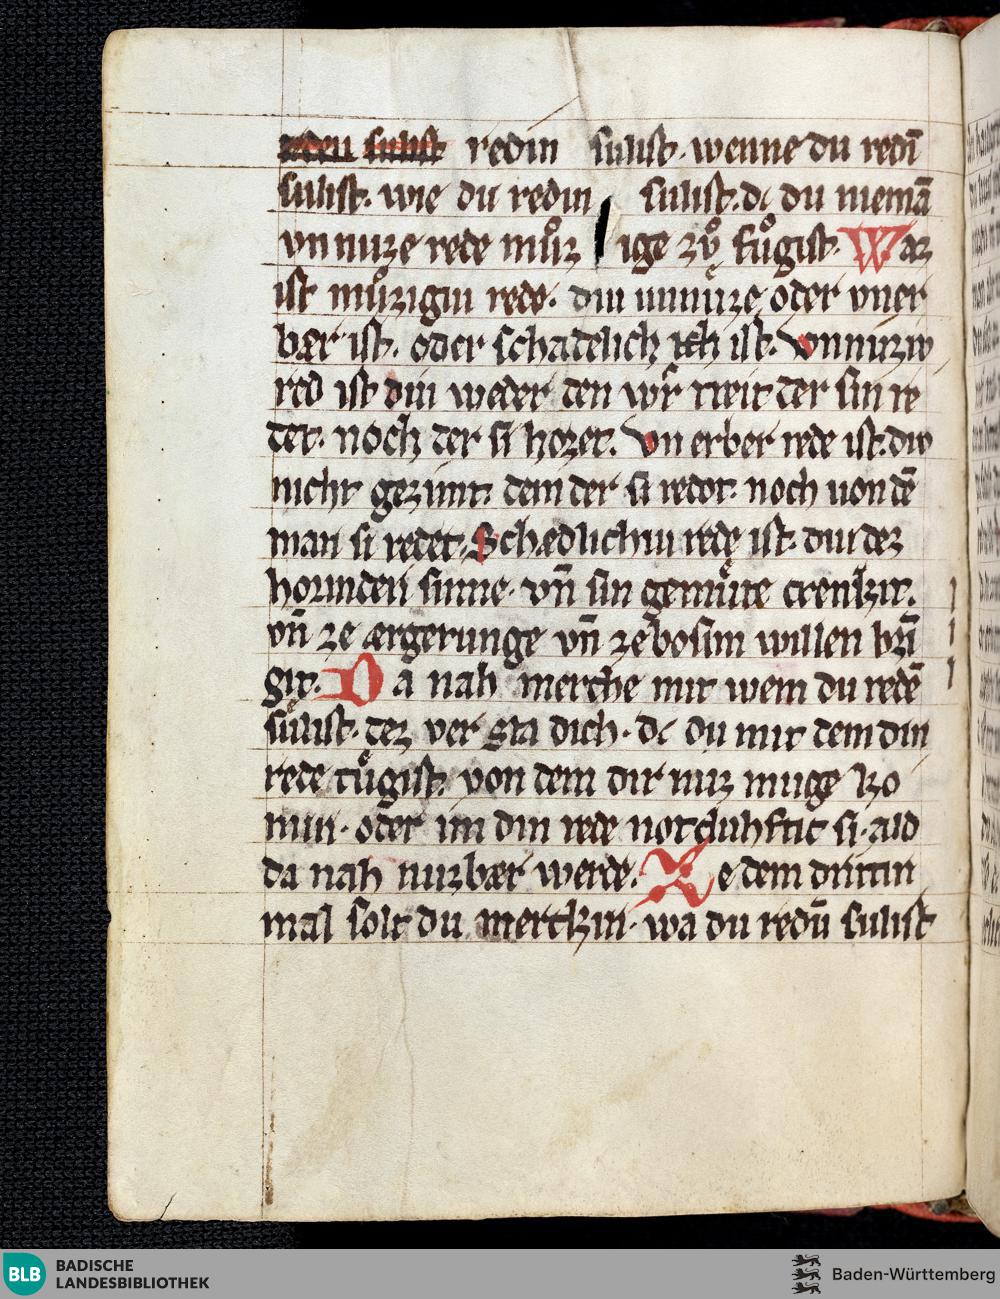 reden sulist redin sulist· wenne du redī
sulist· wie du redin sulist· dc du niemā
vnnuze rede muͦzige zuͦ fuͦgist· Waz
ist muͦzigiu rede· diu unnuze oder vner
bær ist· oder schadelich ist· vnnuziv
red ist diu weder den der sin re
det· noch der si horet· vn erber rede ist· div
nicht gezimt· dem der si redot· noch uon dē
man si redet· Schædlichiu rede ist· diu dez
horinden sinne· vn̄ sin gemuͤte crenkit·
vn̄ ze ærgerunge vn̄ ze bosim willen brī
git· Da nah merche mit wem du redē
sulist· dez ver sta dich· dc du mit dem din
rede tuͤgist· von dem dir nuz muge ko
min· oder im din rede notduhftic si· ald
da nah nuzbær werde· Ze dem dritin
mal solt du merckin· wa du redī sulist
BLB BADISCHE
LANDESBIBLIOTHEK
Baden-Württemberg